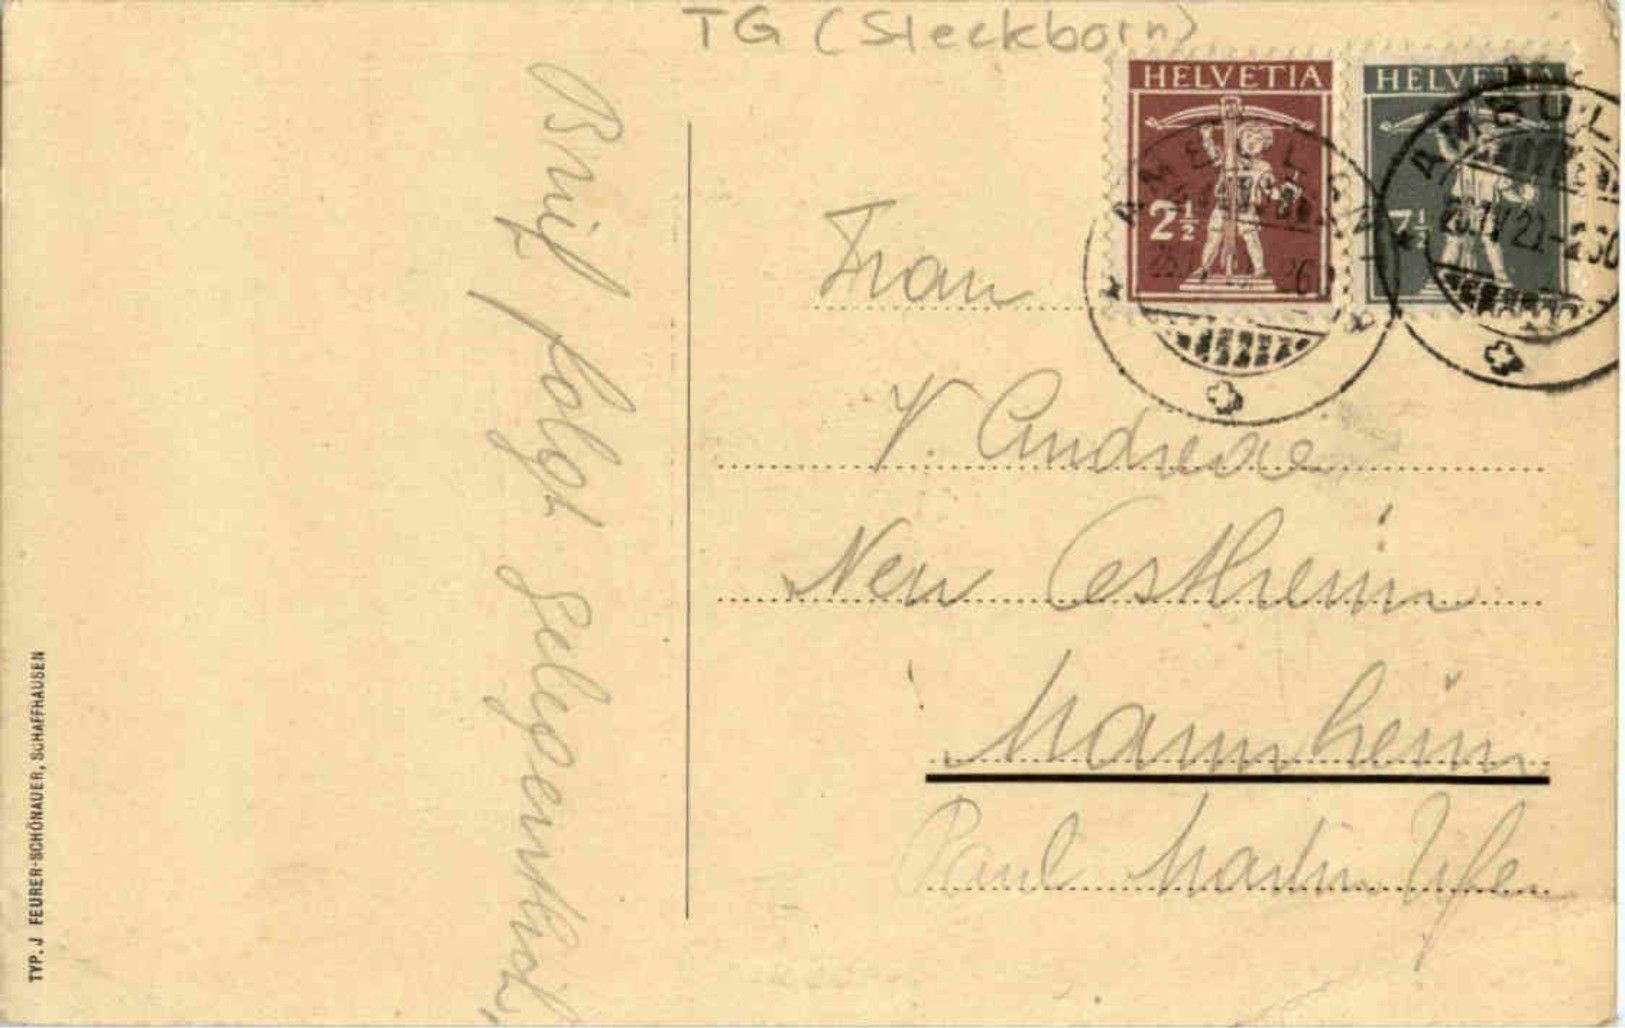 TG (Steckborn)
HELVETIA
2½
HELVETIA
7½
AMBULANT
AMBUL
Brief folgt
Frau
V. Andreae
Neu Ostheim
Mannheim
Paul Martin Ufer
TYP. J FEURER-SCHÖNAUER, SCHAFFHAUSEN